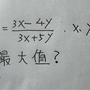 = \frac{3x-4y}{3x+5y} . x. y
最大值?